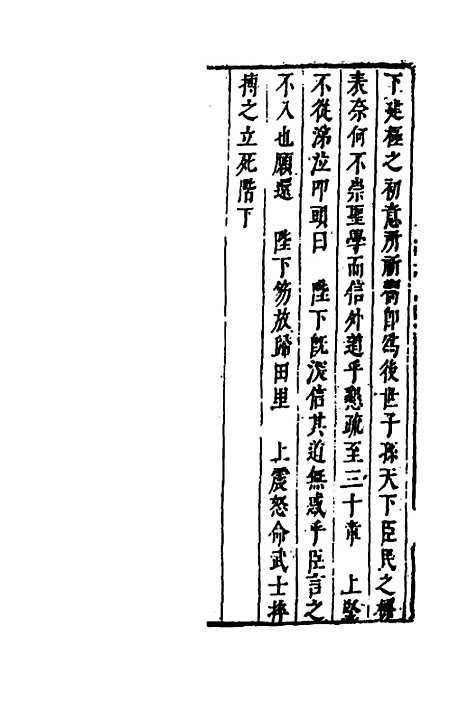 下建極之初意所祈嚮即為後世子孫天下臣民之標
表奈何不崇聖學而信外道乎懇疏至三十章　上堅
不從涕泣叩頭曰　陛下既深信其道無惑乎臣言之
不入也願還　陛下笏放歸田里　上震怒命武士捽
摶之立死階下